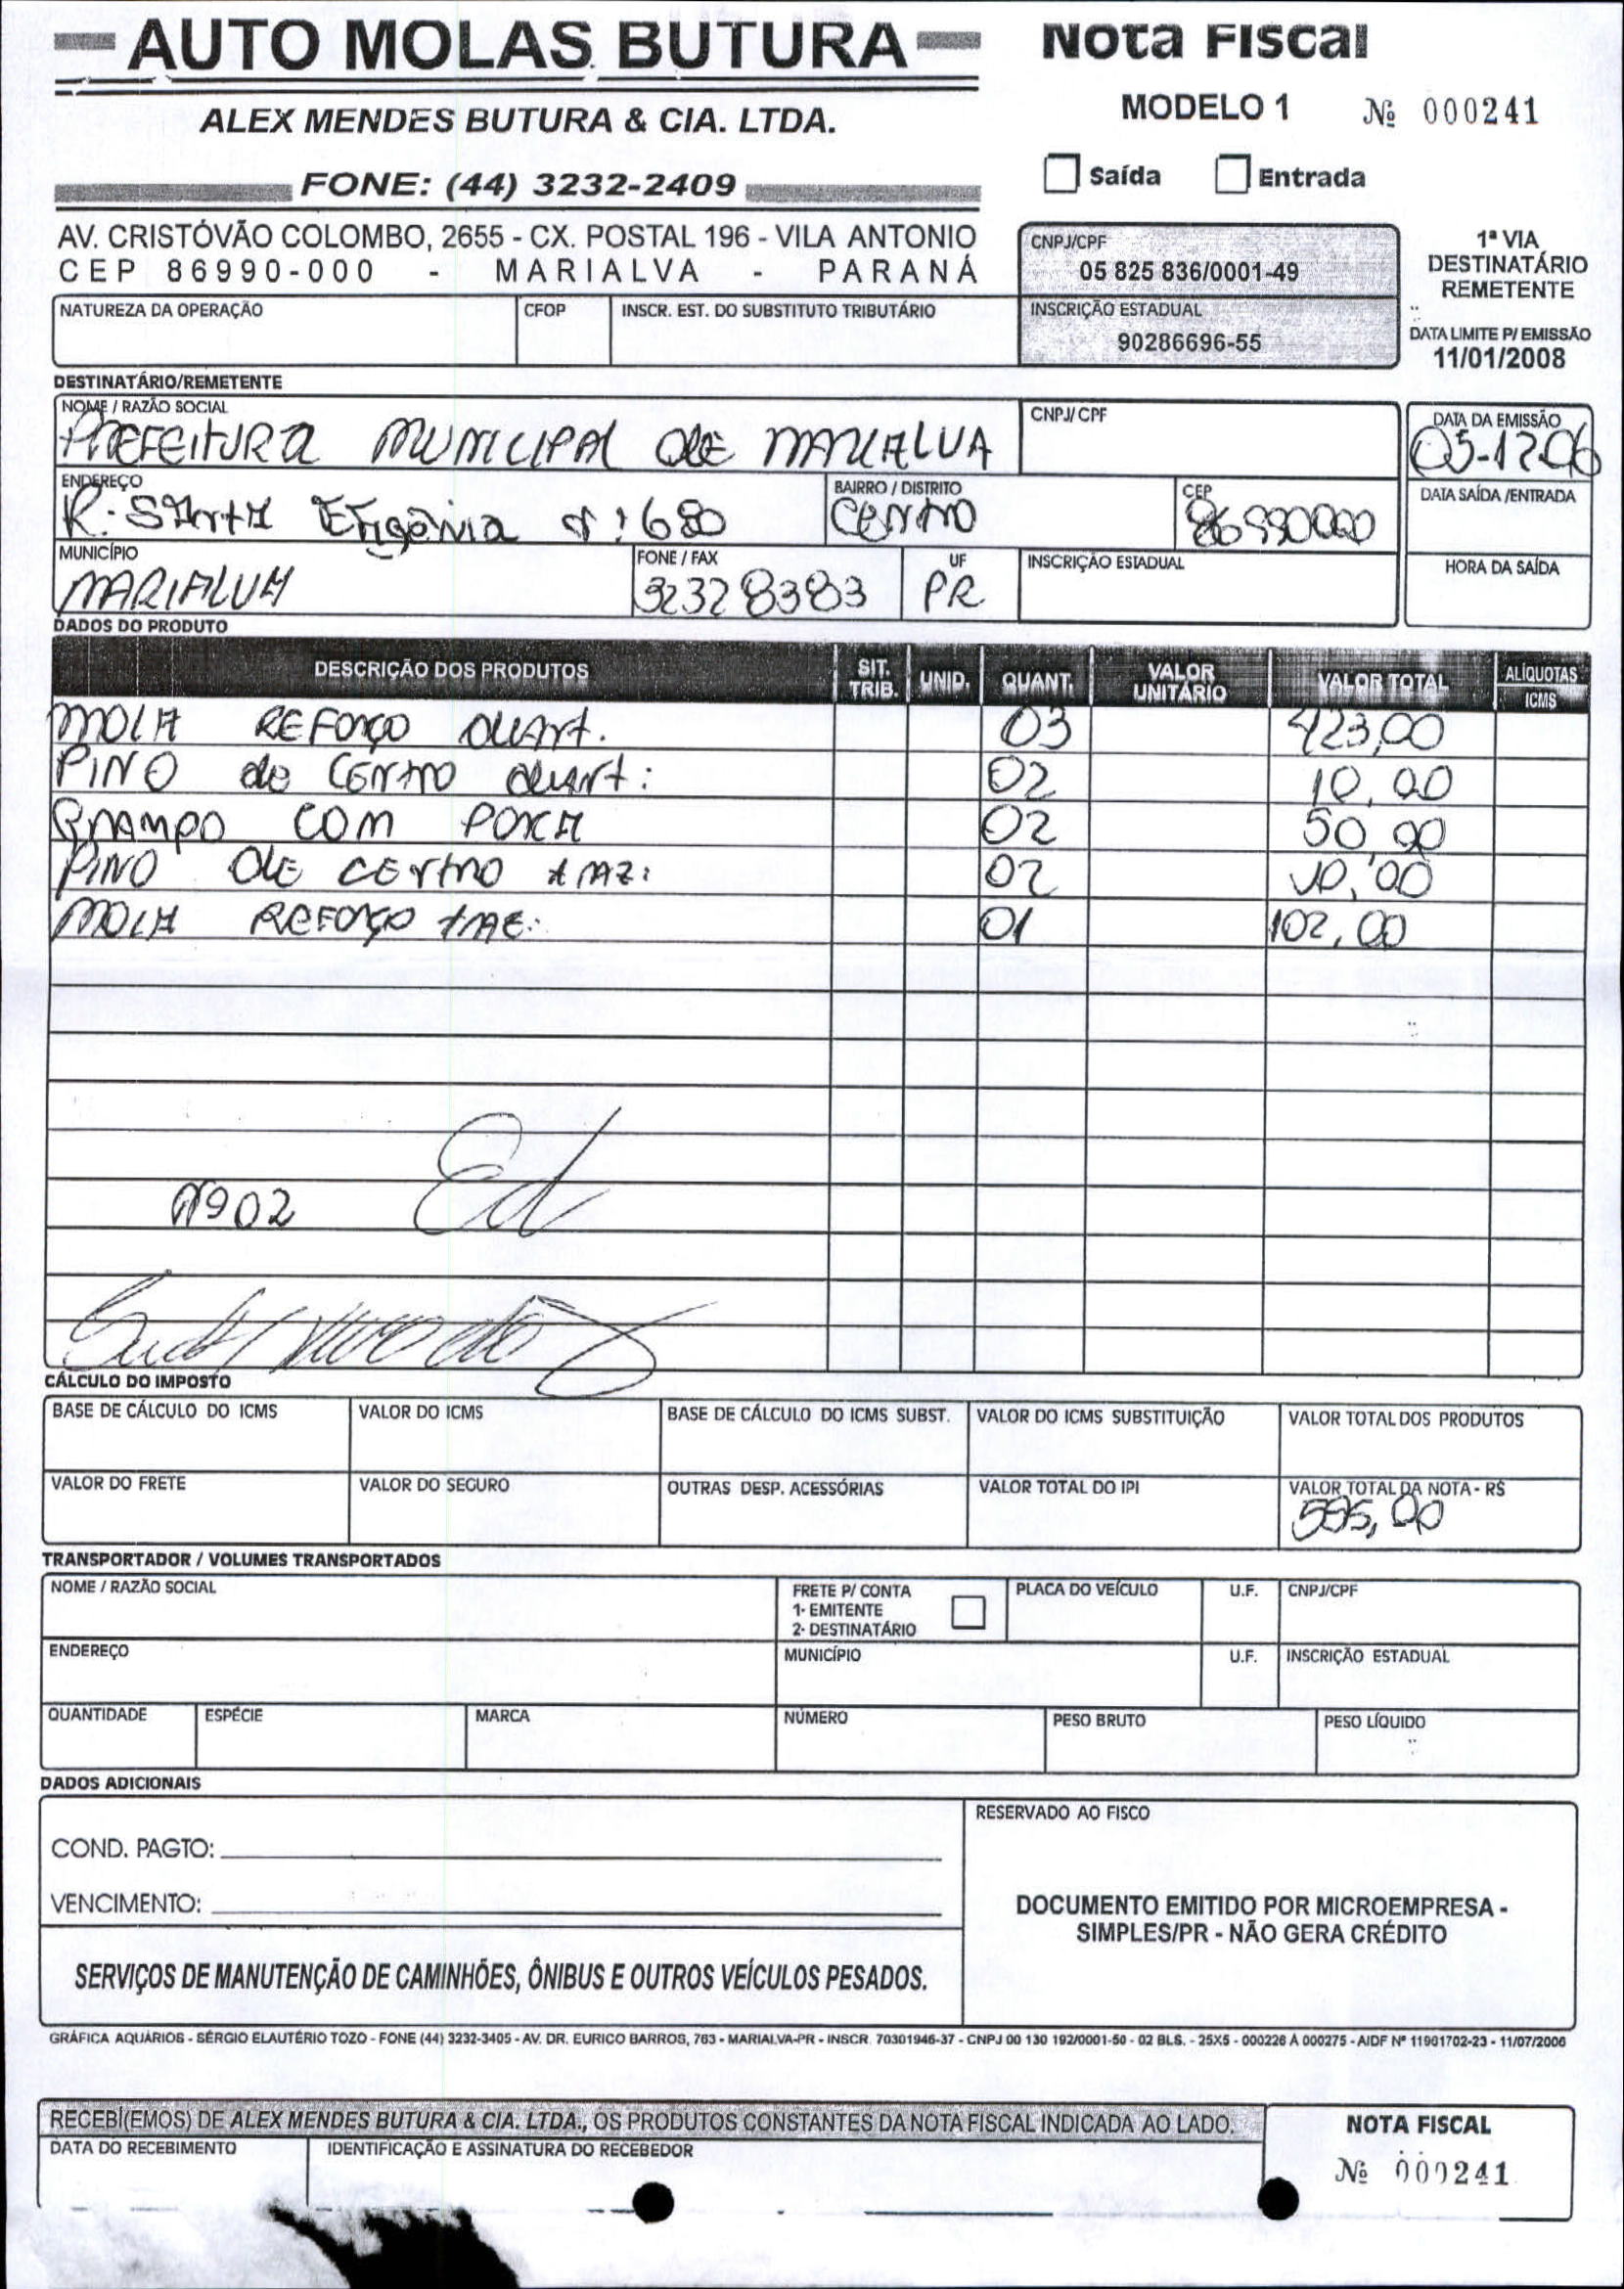 AUTO MOLAS BUTURA
ALEX MENDES BUTURA & CIA. LTDA.
FONE: (44) 3232-2409
AV. CRISTÓVÃO COLOMBO, 2655 - CX. POSTAL 196 - VILA ANTONIO
CEP 86990-000 - MARIALVA - PARANÁ
Nota Fiscal
MODELO 1 Nº 000241
Saída Entrada
CNPJ/CPF
05 825 836/0001-49
INSCRIÇÃO ESTADUAL
90286696-55
1ª VIA
DESTINATÁRIO
REMETENTE
DATA LIMITE P/ EMISSÃO
11/01/2008
NATUREZA DA OPERAÇÃO CFOP INSCR. EST. DO SUBSTITUTO TRIBUTÁRIO
DESTINATÁRIO/REMETENTE
NOME / RAZÃO SOCIAL CNPJ/ CPF DATA DA EMISSÃO
PREFEITURA MUNICIPAL DE MARIALVA 05-12-06
ENDEREÇO BAIRRO / DISTRITO CEP DATA SAÍDA /ENTRADA
R. SANTA Efigênia nº: 680 CENTRO 86990000
MUNICÍPIO FONE / FAX UF INSCRIÇÃO ESTADUAL HORA DA SAÍDA
MARIALVA 32328383 PR
DADOS DO PRODUTO
DESCRIÇÃO DOS PRODUTOS SIT. TRIB. UNID. QUANT. VALOR UNITÁRIO VALOR TOTAL ALÍQUOTAS ICMS
MOLA REFORÇO DIANT. 03 423,00
PINO de CENTRO diant: 02 10,00
GRAMPO COM PORCA 02 50,00
PINO DE CENTRO tRAZ: 02 10,00
MOLA REFORÇO tRAZ: 01 102,00
Ed
CÁLCULO DO IMPOSTO
BASE DE CÁLCULO DO ICMS VALOR DO ICMS BASE DE CÁLCULO DO ICMS SUBST. VALOR DO ICMS SUBSTITUIÇÃO VALOR TOTAL DOS PRODUTOS
VALOR DO FRETE VALOR DO SEGURO OUTRAS DESP. ACESSÓRIAS VALOR TOTAL DO IPI VALOR TOTAL DA NOTA - R$
595,00
TRANSPORTADOR / VOLUMES TRANSPORTADOS
NOME / RAZÃO SOCIAL FRETE P/ CONTA PLACA DO VEÍCULO U.F. CNPJ/CPF
1- EMITENTE
2- DESTINATÁRIO
ENDEREÇO MUNICÍPIO U.F. INSCRIÇÃO ESTADUAL
QUANTIDADE ESPÉCIE MARCA NÚMERO PESO BRUTO PESO LÍQUIDO
DADOS ADICIONAIS
COND. PAGTO:
VENCIMENTO:
SERVIÇOS DE MANUTENÇÃO DE CAMINHÕES, ÔNIBUS E OUTROS VEÍCULOS PESADOS.
RESERVADO AO FISCO
DOCUMENTO EMITIDO POR MICROEMPRESA -
SIMPLES/PR - NÃO GERA CRÉDITO
GRÁFICA AQUÁRIOS - SÉRGIO ELAUTÉRIO TOZO - FONE (44) 3232-3405 - AV. DR. EURICO BARROS, 763 - MARIALVA-PR - INSCR. 70301946-37 - CNPJ 00 130 192/0001-50 - 02 BLS. - 25X5 - 000226 A 000275 - AIDF Nº 11901702-23 - 11/07/2006
RECEBI(EMOS) DE ALEX MENDES BUTURA & CIA. LTDA., OS PRODUTOS CONSTANTES DA NOTA FISCAL INDICADA AO LADO.
DATA DO RECEBIMENTO IDENTIFICAÇÃO E ASSINATURA DO RECEBEDOR
NOTA FISCAL
Nº 000241